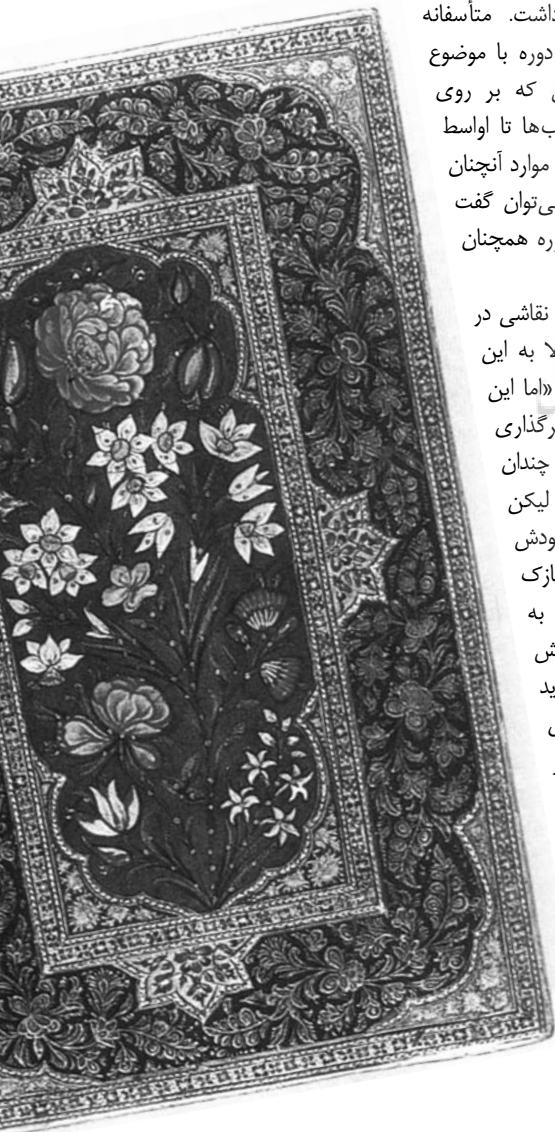 داشت. متأسفانه
دوره با موضوع
که بر روی
ب‌ها تا اواسط
موارد آنچنان
ی‌توان گفت
وره همچنان
نقاشی در
لا به این
«اما این
رگذاری
چندان
لیکن
ودش
ازک
به
ش
ید